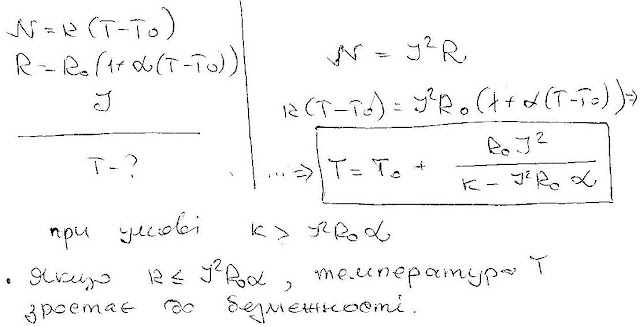 N = k (T-T₀)
R = R₀ (1+ α(T-T₀))
J
T - ?
N = J²R
k(T-T₀) = J²R₀ (1+ α(T-T₀)) ⇒
... ⇒ T = T₀ + R₀J² / (k - J²R₀α)
при умові k > J²R₀α
• Якщо k ≤ J²R₀α, температура T
зростає до безмежності.